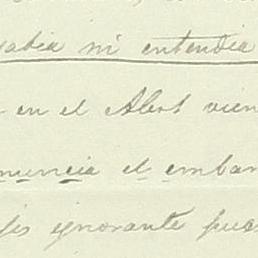 sabia ni entendia
en el Abert vien
nuncia el embar
ignorante pues